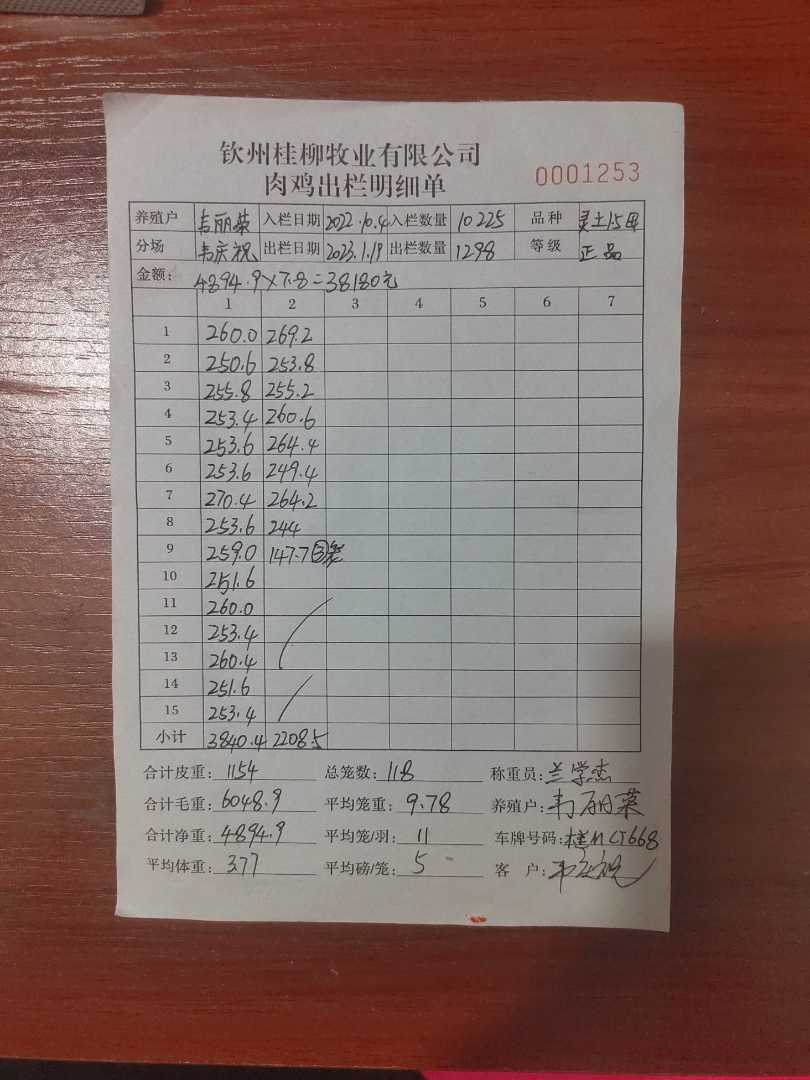 钦州桂柳牧业有限公司
肉鸡出栏明细单
0001253
养殖户 韦丽菜 入栏日期 2022.10.4 入栏数量 10225 品种 灵土15
分场 韦庆祝 出栏日期 2023.1.19 出栏数量 1298 等级 正品
金额: 4894.9×7.8=38180元
1 2 3 4 5 6 7
1 260.0 269.2
2 250.6 253.8
3 255.8 255.2
4 253.4 260.6
5 253.6 264.4
6 253.6 249.4
7 270.4 264.2
8 253.6 244
9 259.0 147.7 ③笼
10 251.6
11 260.0
12 253.4
13 260.4
14 251.6
15 253.4
小计 3840.4 2208.5
合计皮重: 1154 总笼数: 118 称重员: 兰学杰
合计毛重: 6048.9 平均笼重: 9.78 养殖户: 韦丽菜
合计净重: 4894.9 平均笼/羽: 11 车牌号码: 桂MCT668
平均体重: 3.77 平均磅/笼: 5 客户: 韦庆祝